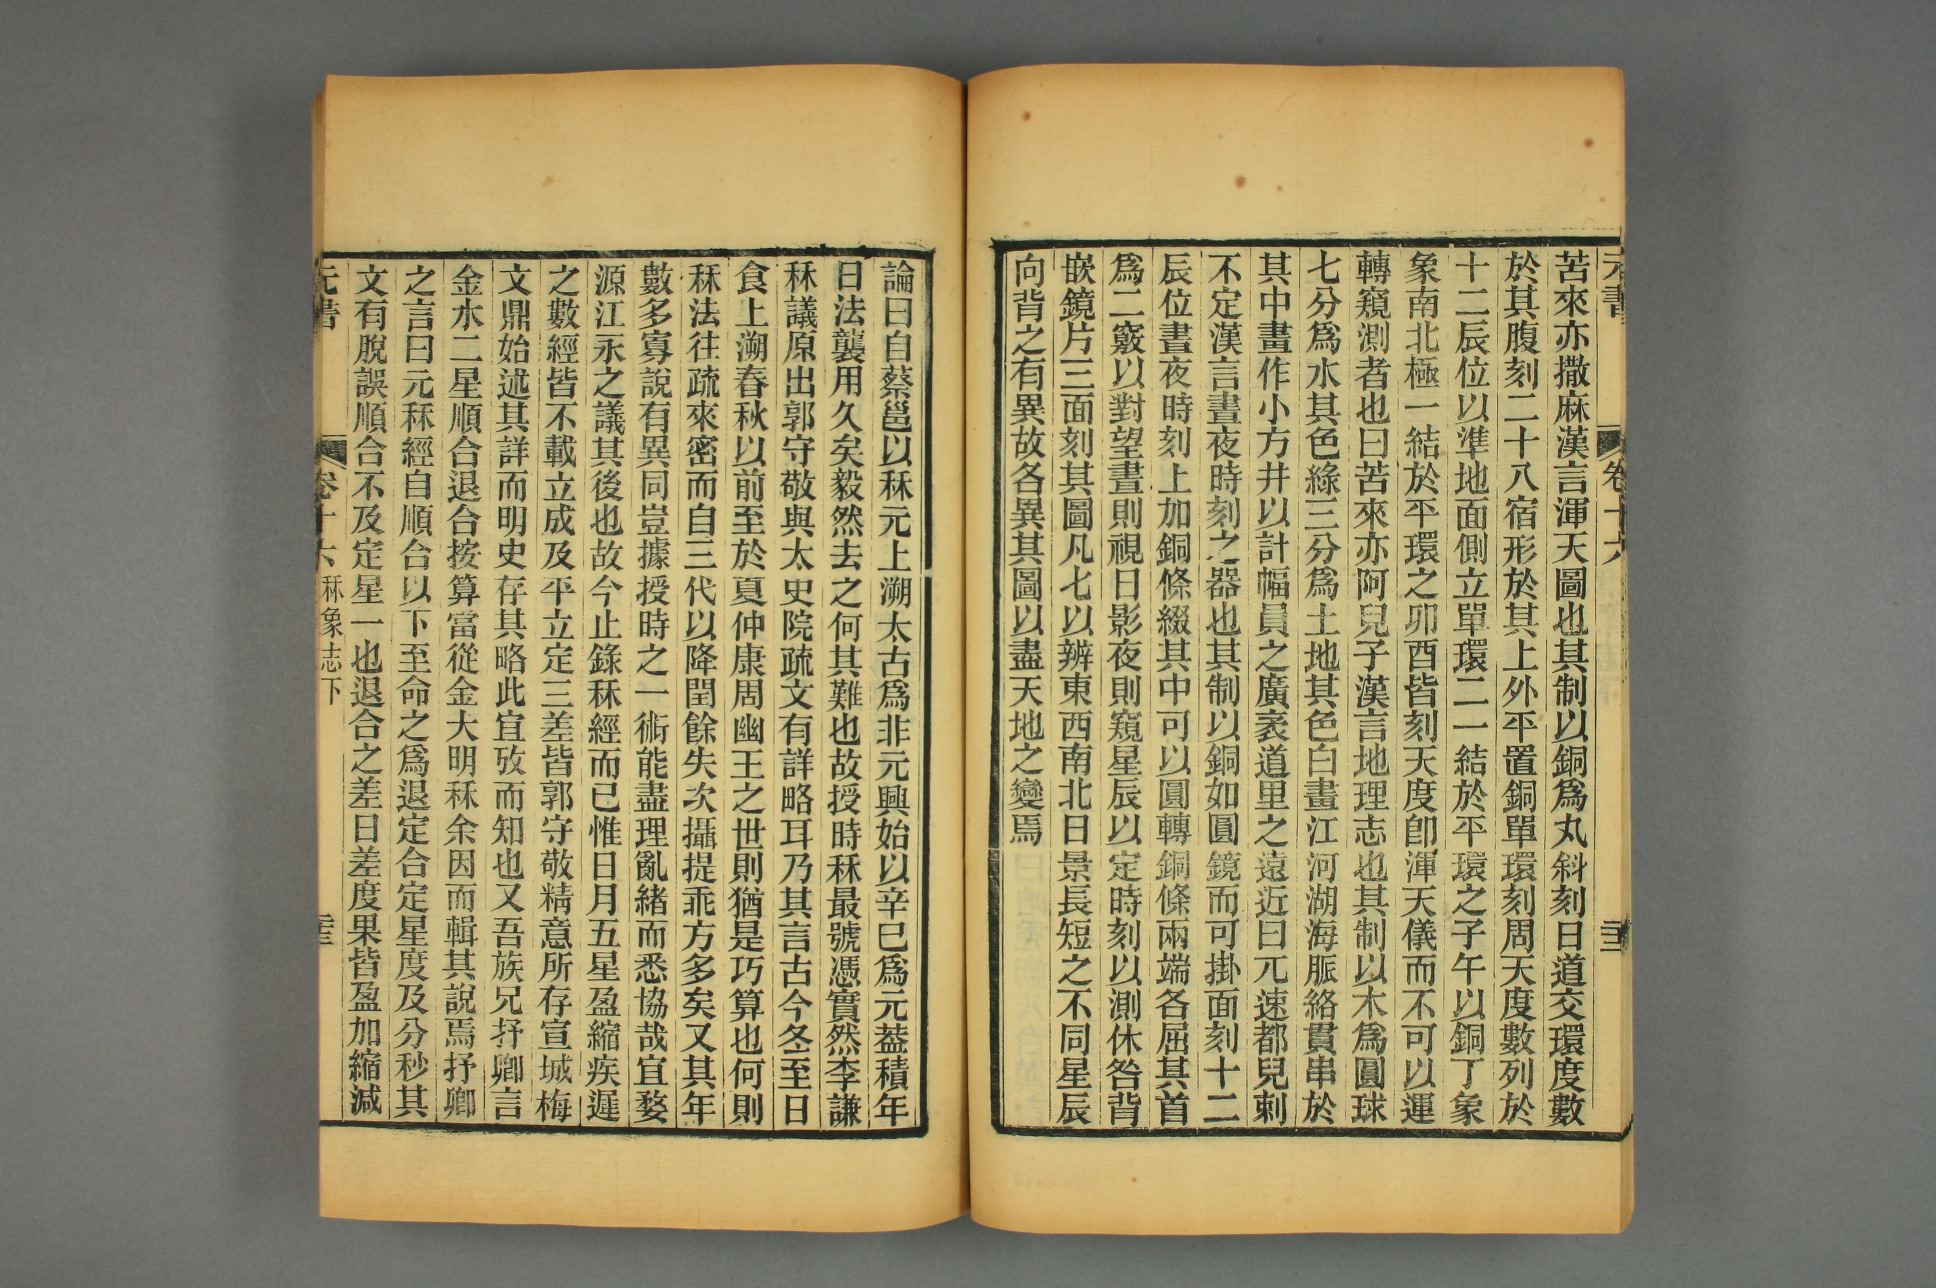 元書
卷十六
苦來亦撒麻漢言渾天圖也其制以銅爲丸斜刻日道交環度數
於其腹刻二十八宿形於其上外平置銅單環刻周天度數列於
十二辰位以準地面側立單環二一結於平環之子午以銅丁象
象南北極一結於平環之卯酉皆刻天度卽渾天儀而不可以運
轉窺測者也曰苦來亦阿兒子漢言地理志也其制以木爲圓球
七分爲水其色綠三分爲土地其色白畫江河湖海脈絡貫串於
其中畫作小方井以計幅員之廣袤道里之遠近曰兀速都兒剌
不定漢言晝夜時刻之器也其制以銅如圓鏡而可掛面刻十二
辰位晝夜時刻上加銅條綴其中可以圓轉銅條兩端各屈其首
爲二竅以對望晝則視日影夜則窺星辰以定時刻以測休咎背
嵌鏡片三面刻其圖凡七以辨東西南北日景長短之不同星辰
向背之有異故各異其圖以盡天地之變焉
論曰自蔡邕以秝元上溯太古爲非元興始以辛巳爲元葢積年
日法襲用久矣毅然去之何其難也故授時秝最號憑實然李謙
秝議原出郭守敬與太史院疏文有詳略耳乃其言古今冬至日
食上溯春秋以前至於夏仲康周幽王之世則猶是巧算也何則
秝法往疏來密而自三代以降閏餘失次攝提乖方多矣又其年
數多寡說有異同豈據授時之一術能盡理亂緒而悉協哉宜婺
源江永之議其後也故今止錄秝經而已惟日月五星盈縮疾遲
之數經皆不載立成及平立定三差皆郭守敬精意所存宣城梅
文鼎始述其詳而明史存其略此宜攷而知也又吾族兄抒卿言
金水二星順合退合按算當從金大明秝余因而輯其說焉抒卿
之言曰元秝經自順合以下至命之爲退定合定星度及分秒其
文有脫誤順合不及定星一也退合之差日差度果皆盈加縮減
元書
卷十六
秝象志下